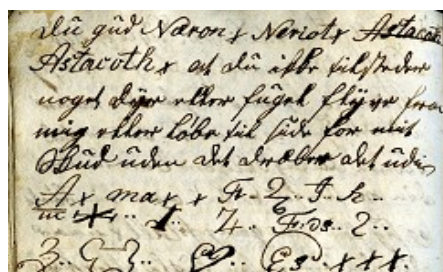 du gud Næron x Neriot x Astaco
Astacoth x at du ikke tilsteder
noget dyr eller fugel flyve fra
mig eller løbe til side for mit
Skud uden det dræber det uden
A x max x F.. 2.. J.. h..
m.. 1.. 4.. F.. 2..
3..